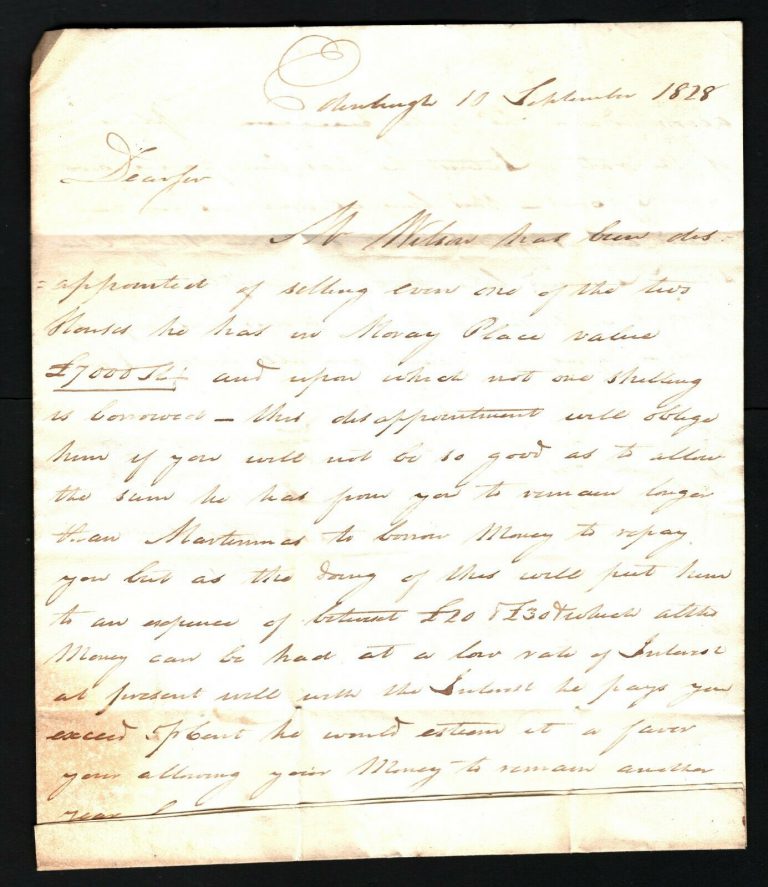 Edinburgh 10 September 1828
Dear Sir
Mr Wilson has been dis=
=appointed of selling even one of the two
Houses he has in Moray Place value
£7000 and upon which not one shilling
is borrowed – this disappointment will oblige
him if you will not be so good as to allow
the sum he has from you to remain longer
than Martinmas to borrow Money to repay
you but as the doing of this will put him
to an expence of betwixt £20 & £30 & which altho
Money can be had at a low rate of Interest
at present will with the Interest he pays you
exceed 5 p Cent he would esteem it a favor
your allowing your Money to remain another
year